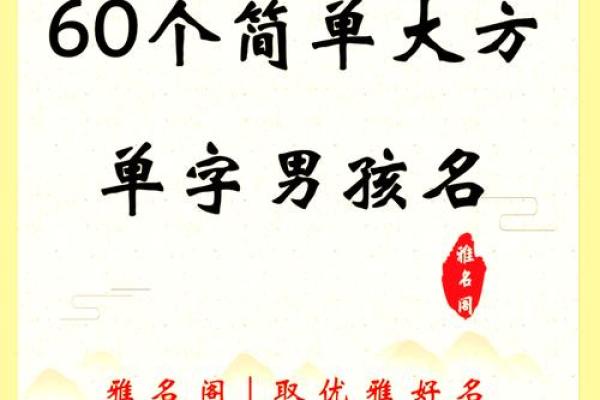 60个简单大方
单字男孩名
雅名阁
雅名阁|取优雅好名